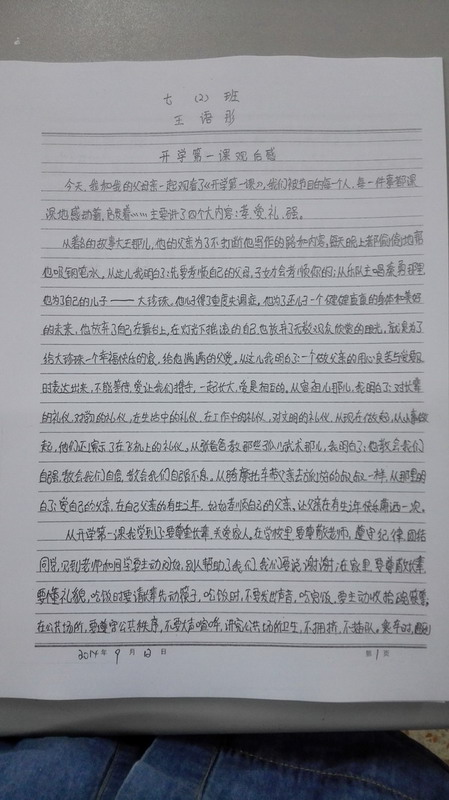 七（2）班
王语彤
开学第一课观后感
今天，我和我的父母亲一起观看了《开学第一课》，我们被节目的每一个人，每一件事都深
深地感动着，自责着……主要讲了四个大内容：孝、爱、礼、强。
从著名的故事大王那儿，他的父亲为了不打断他写作的思路和内容，每天晚上都偷偷地帮
他吸钢笔水。从这儿我明白了：先要孝顺自己的父母，子女才会孝顺你的；从乐队主唱秦勇那里
他为了自己的儿子——大珍珠，他儿子得了重度失调症。他为了还儿子一个健健康康的身体和美好
的未来，他放弃了自己在舞台上，在灯光下摇滚的自己，也放弃了无数观众欣赏的目光，就是为了
给大珍珠一个幸福快乐的家，给他满满的父爱。从这儿我明白了：一个做父亲的用心良苦与爱要及
时表达出来，不能等待，爱让我们携手，一起长大，爱是相互的。从容祖儿那儿，我明白了：对长辈
的礼仪，对朋友的礼仪，在生活中的礼仪，在工作中的礼仪，对文明的礼仪，从现在做起，从小事做
起，他们还演示了在飞机上的礼仪。从张爸爸教那些孤儿武术那儿，我明白了：他教会我们
自强，教会我们自信，教会我们自强不息。从骑摩托车带父亲去旅行的叔叔一样，从那里明
白了：爱自己的父亲，在自己父亲的有生之年，好好孝顺自己的父亲，让父亲在有生之年快乐
从开学第一课我学到了：要尊重长辈，关爱家人。在学校里要尊敬老师，遵守纪律，团结
同学，见到老师和同学要主动问好，别人帮助了我们，我们要说谢谢；在家里要尊敬长辈
要懂礼貌，吃饭时要请长辈先动筷子，吃饭时，不要发出声音，吃完饭，要主动收拾碗筷；
在公共场所，要遵守公共秩序，不要大声喧哗，讲究公共场所卫生，不拥挤，不插队。乘车时，
2014年9月12日 第1页